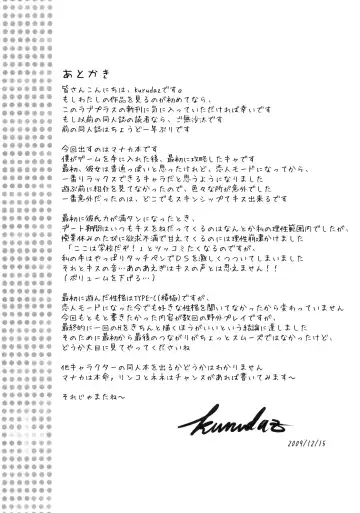 あとかき
皆さんこんにちは、kurudazです。
もしわたしの作品を見るのが初めてなら、
このラブプラスの新刊に気に入っていただければ幸いです
もし以前の同人誌の読者なら、ご無沙汰です
前の同人誌はちょうど一年ぶりです
今回出すのはマナカ本です
僕がゲームを手に入れた後、最初に攻略したキャです
最初、彼女は普通っぽいと思ったけれど、恋人モードになってから、
一番リラックスできるキャラだと思うようになりました
遊ぶ前に紹介を見てなかったので、色々な所が意外でした
一番意外だったのは、どこでもスキンシップでキス出来るです
最初に彼氏力が満タンになったとき、
デート期間はいつもキスをねだってくるのはなんとか私の理性範囲内でしたが、
授業休みのたびに欲求不満で甘えてくるのには理性崩壊かけました
「ここは学校だぞ!」とツッコミたくなるのですが、
私の手はやっぱりタッチペンでDSを激しくつっついてしまいました
それとキスの音…あのあえぎはキスの声とは思えません!!
(ボリュームを下げろ…)
最初に遊んだ性格はTYPE-C(積極)ですが、
恋人モードになった今でも好きな性格を聞いてなかったから変わっていません
今回もともと書きたかった内容が数回の野外プレイですが、
最終的に一回のHをきちんと描くほうがいいという結論に達しました
そのために最初から最後のつながりがちょっとスムーズではなったけど、
どうか大目に見てやってくださいね
他キャラクターの同人本を出るかどうかはわかりません
マナカは本命、リンコとネネはチャンスがあれば書いてみます~
それじゃまたね~
kurudaz
2009/12/15